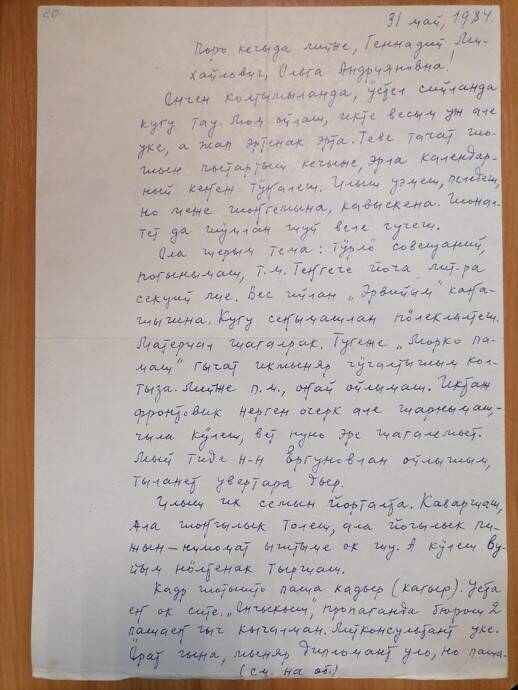 20
31 май, 1984.
Поро кечыда лийже, Геннадий Ми-
хайлович, Ольга Андрияновна!
Ончен колтымыланда, ӱстел сийланда
кугу тау. Мом ойлаш, икте весым уж але
уке, а жап эртенак эрта. Теве тачат шо-
шын пытартыш кечыже, эрла календар-
ный кеҥеж тӱҥалеш. Илыш уэмеш, пеледеш,
но меже шоҥгемына, кавыскена. Шонал-
тет да шӱмлан шуй веле чучеш.
Ола шерым тема: тӱрлӧ совещаний,
погынымаш, т.м. Теҥгече йоча лит-ра
секций лие. Вес ийлан „Эрвийым" каҥа-
шышна. Кугу сеҥымашлан пӧлеклалтеш.
Материал шагалрак. Тугеже „Морко па-
маш" гычат икмыняр чӱчалтышым кол-
тыза. Лийже п.м., оҥай ойлымаш. Иктаж
фронтовик нерген очерк але шарнымаш, -
чыла кӱлеш, вет нуно эре шагалемыт.
Мый тиде н-н Ергуновлан ойлышым,
тыланет увертара дыр.
Илыш ик семын йорталта. Каваршаш,
ала шоҥгылык толеш, ала йогылык пи-
жын - нимомат ыштыме ок шу. А кӱлеш ву-
йым нӧлтенак тыршаш.
Кадр шотышто паша кадыр (кагыр). Уста
еҥ ок сите. „Ончыкыш", пропаганда бюрош 2
пашаеҥ гыч кычалман. Литконсультант уке.
Ӧрат гына, мыняр дипломант уло, но паша-
(см. на об.)